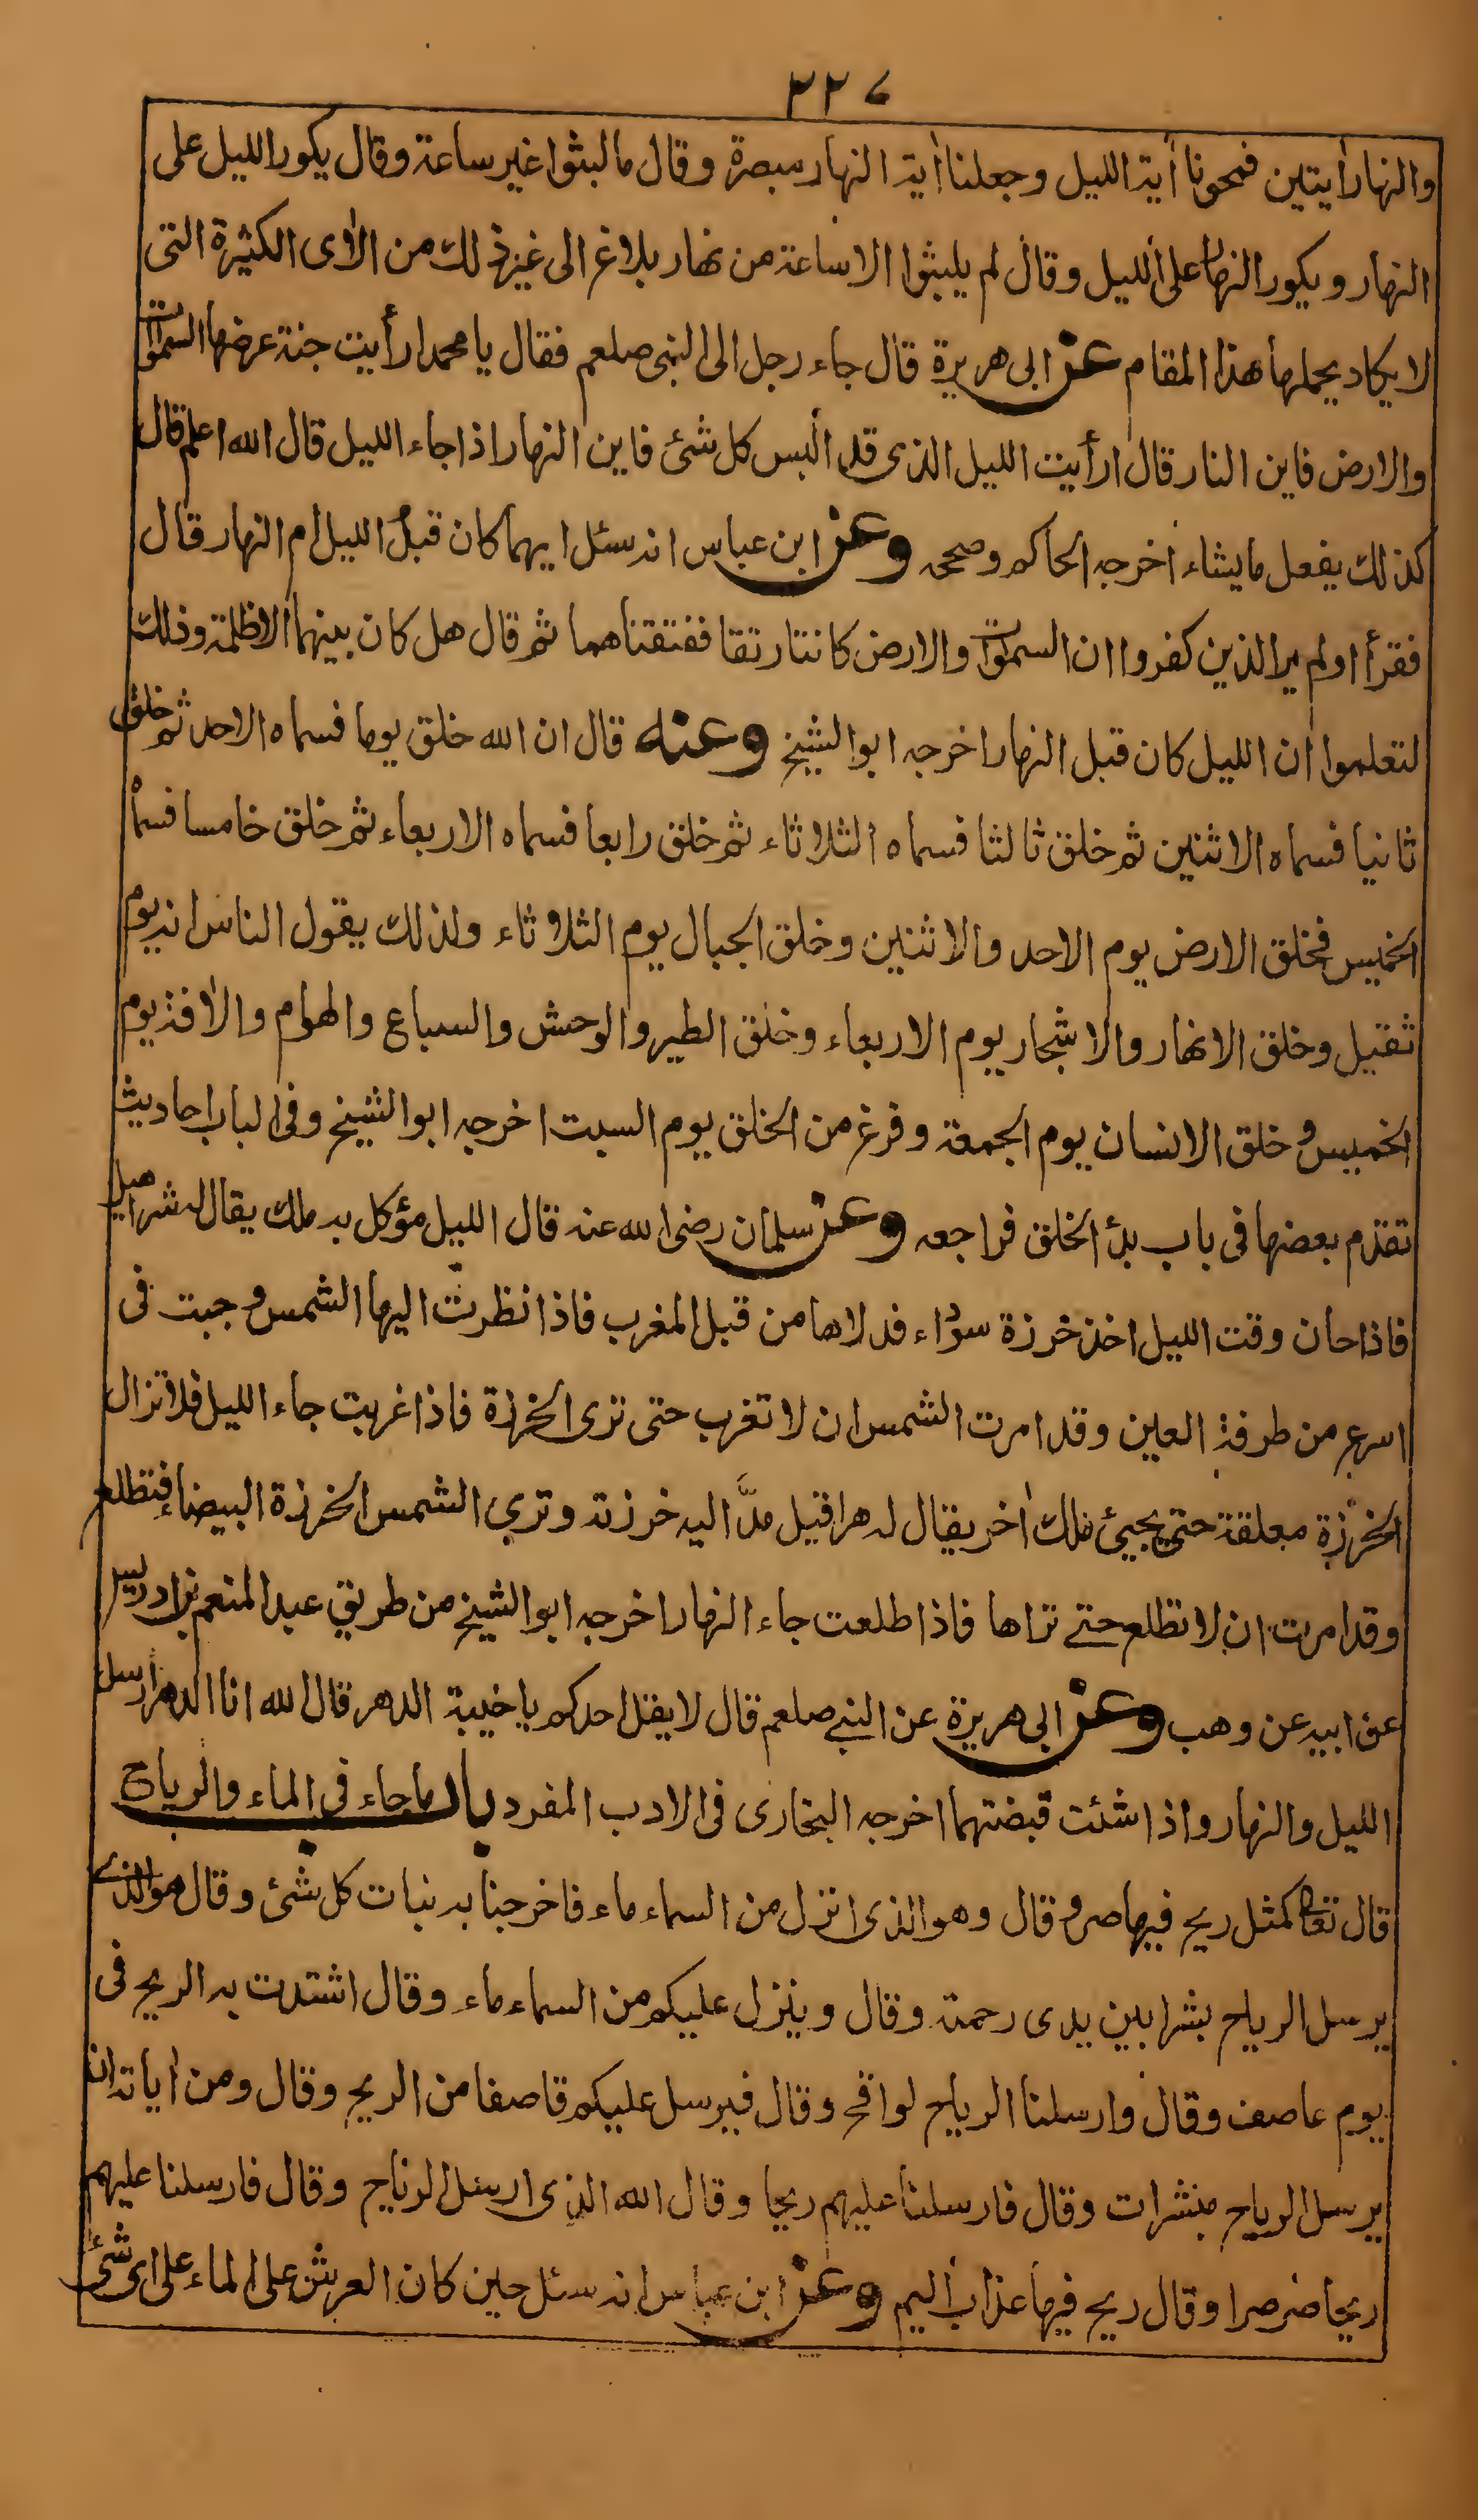 ٢٢٧
والنهار أيتين فمحونا أية الليل وجعلنا أية النهار مبصرة وقال ما لبثوا غير ساعة وقال يكور الليل على
النهار ويكور النهار على الليل وقال لم يلبثوا الا ساعة من نهار بلاغ الى غير ذلك من الأى الكثيرة التى
لا يكاد يحملها هذا المقام عن ابى هريرة قال جاء رجل الى النبى صلعم فقال يا محمد ارأيت جنة عرضها السموات
والارض فاين النار قال ارأيت الليل الذى قد البس كل شئ فاين النهار اذا جاء الليل قال الله اعلم قال
كذلك يفعل ما يشاء اخرجه الحاكم وصححه وعن ابن عباس انه سئل ايهما كان قبل الليل ام النهار قال
فقرأ اولم ير الذين كفروا ان السموات والارض كانتا رتقا ففتقناهما ثم قال هل كان بينهما الا ظلمة وذلك
لتعلموا ان الليل كان قبل النهار اخرجه ابو الشيخ وعنه قال ان الله خلق يوما فسماه الاحد ثم خلق
ثانيا فسماه الاثنين ثم خلق ثالثا فسماه الثلاثاء ثم خلق رابعا فسماه الاربعاء ثم خلق خامسا فسماه
الخميس فخلق الارض يوم الاحد والاثنين وخلق الجبال يوم الثلاثاء ولذلك يقول الناس انه يوم
ثقيل وخلق الانهار والاشجار يوم الاربعاء وخلق الطير والوحش والسباع والهوام والأفة يوم
الخميس وخلق الانسان يوم الجمعة وفرغ من الخلق يوم السبت اخرجه ابو الشيخ وفى الباب احاديث
تقدم بعضها فى باب بدأ الخلق فراجعه وعن سلمان رضى الله عنه قال الليل مؤكل به ملك يقال له شراهيل
فاذا حان وقت الليل اخذ خرزة سوداء فدلاها من قبل المغرب فاذا نظرت اليها الشمس وجبت فى
اسرع من طرفة العين وقد امرت الشمس ان لا تغرب حتى ترى الخرزة فاذا غربت جاء الليل فلا تزال
الخرزة معلقة حتى يجيئ ملك أخر يقال له هراقيل مدّ اليه خرزته وترى الشمس الخرزة البيضاء فتطلع
وقد امرت ان لا تطلع حتے تراها فاذا طلعت جاء النهار اخرجه ابو الشيخ من طريق عبد المنعم بن ادريس
عن ابيه عن وهب وعن ابى هريرة عن النبے صلعم قال لا يقل احدكم يا خيبة الدهر قال الله انا الدهر ارسل
الليل والنهار واذا شئت قبضتهما اخرجه البخارى فى الادب المفرد باب ما جاء فى الماء والرياح
قال تعالى كمثل ريح فيها صر وقال وهو الذى انزل من السماء ماء فاخرجنا به نبات كل شئ وقال هو الذے
يرسل الرياح بشرا بين يدى رحمته وقال وينزل عليكم من السماء ماء وقال اشتدت به الريح فى
يوم عاصف وقال وارسلنا الرياح لواقح وقال فيرسل عليكم قاصفا من الريح وقال ومن اياته ان
يرسل الرياح مبشرات وقال فارسلنا عليهم ريحا وقال الله الذى ارسل الرياح وقال فارسلنا عليهم
ريحا صرصرا وقال ريح فيها عذاب اليم وعن ابن عباس انه سئل حين كان العرش على الماء على اى شئ